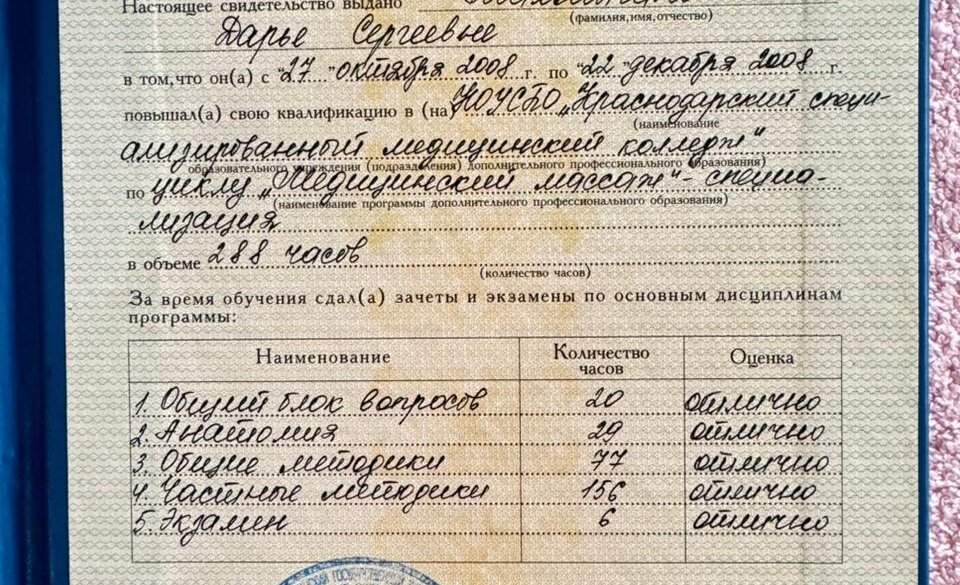 Настоящее свидетельство выдано
(фамилия, имя, отчество)
Дарье Сергеевне
в том, что он(а) с "27" октября 2008 г. по "22" декабря 2008 г.
повышал(а) свою квалификацию в (на) НОУСПО „Краснодарский специ-
(наименование
ализированный медицинский колледж"
образовательного учреждения (подразделения) дополнительного профессионального образования)
по циклу „Медицинский массаж" - специа-
(наименование программы дополнительного профессионального образования)
лизация
в объеме 288 часов
(количество часов)
За время обучения сдал(а) зачеты и экзамены по основным дисциплинам
программы:
Наименование Количество часов Оценка
1. Общий блок вопросов 20 отлично
2. Анатомия 29 отлично
3. Общие методики 77 отлично
4. Частные методики 156 отлично
5. Экзамен 6 отлично